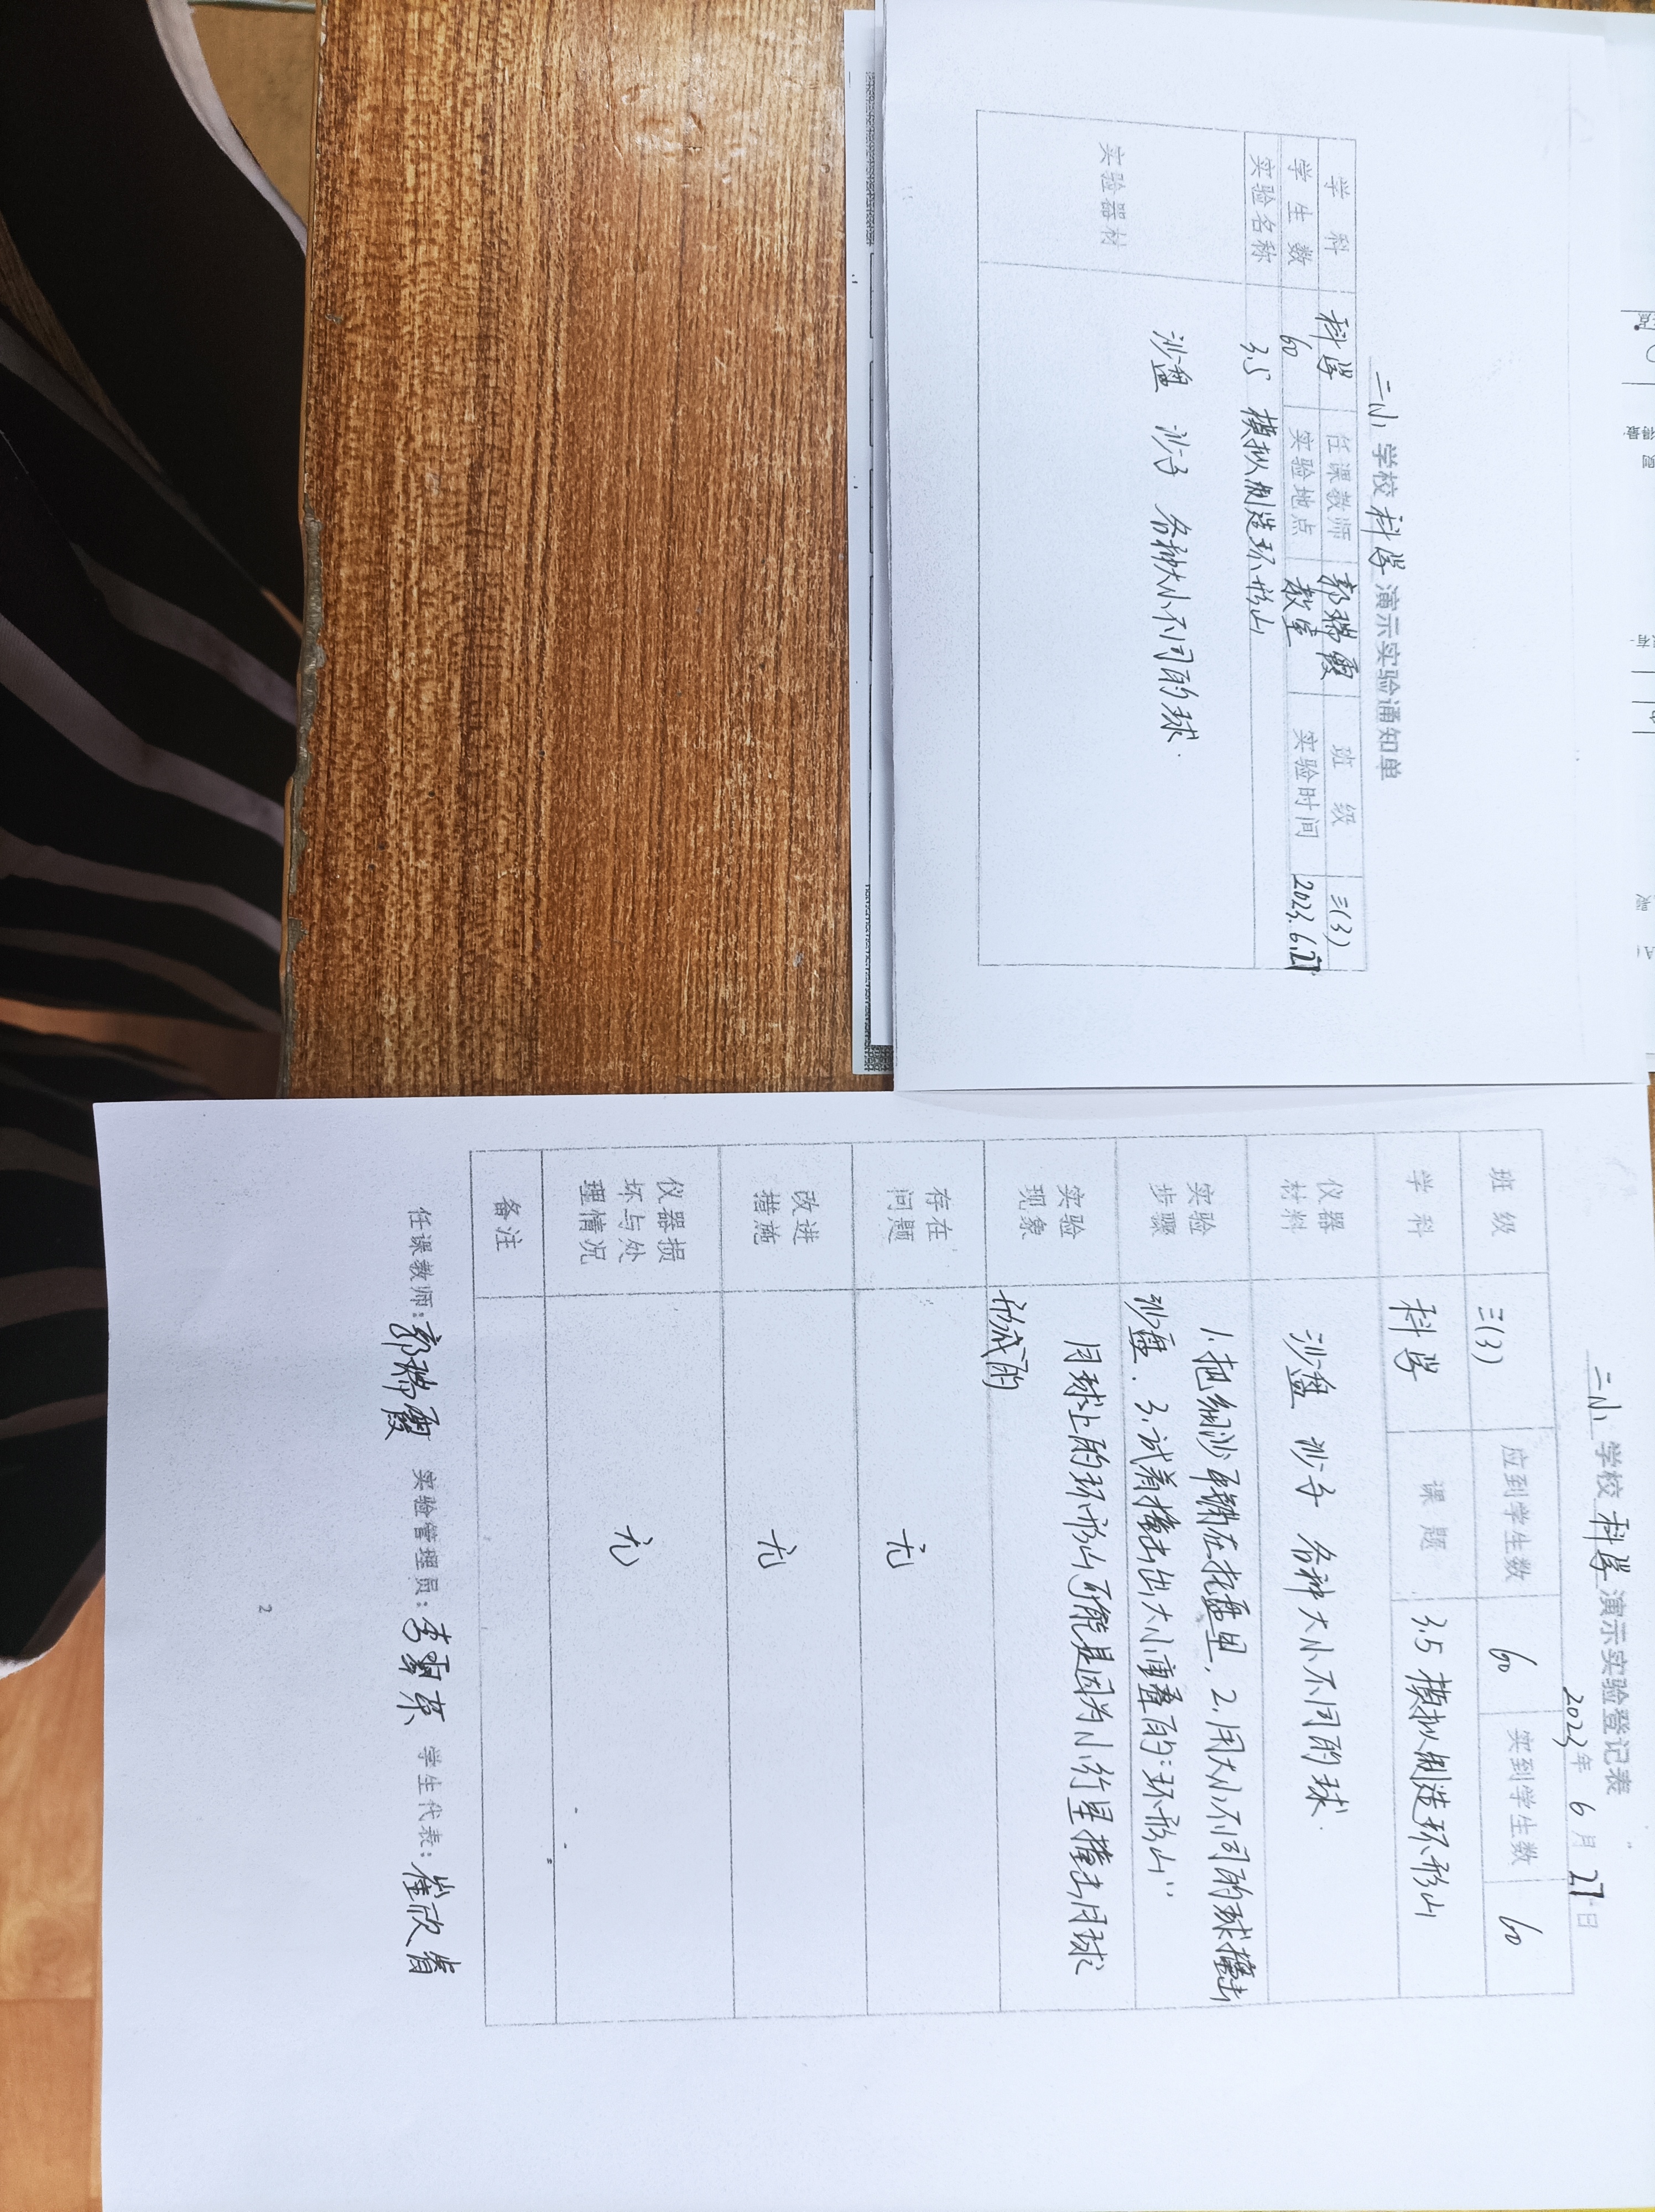 二小 学校 科学 演示实验通知单
学 科 科学 任课教师 郭瑞霞 班 级 三(3)
学 生 数 60 实验地点 教室 实验时间 2023.6.27
实验名称 3.5 模拟制造环形山
实验器材 沙盘 沙子 各种大小不同的球.
二小 学校 科学 演示实验登记表
2023年 6月 27日
班 级 三(3) 应到学生数 60 实到学生数 60
学 科 科学 课 题 3.5 模拟制造环形山
仪器 材料 沙盘 沙子 各种大小不同的球.
实验 步骤 1.把细沙平铺在托盘里, 2.用大小不同的球撞击
沙盘. 3.试着撞击出大小重叠的"环形山"
实验 现象 月球上的环形山可能是因为小行星撞击月球
形成的
存在 问题 无
改进 措施 无
仪器损 坏与处 理情况 无
备注
任课教师:郭瑞霞 实验管理员: 学生代表:崔欣
2